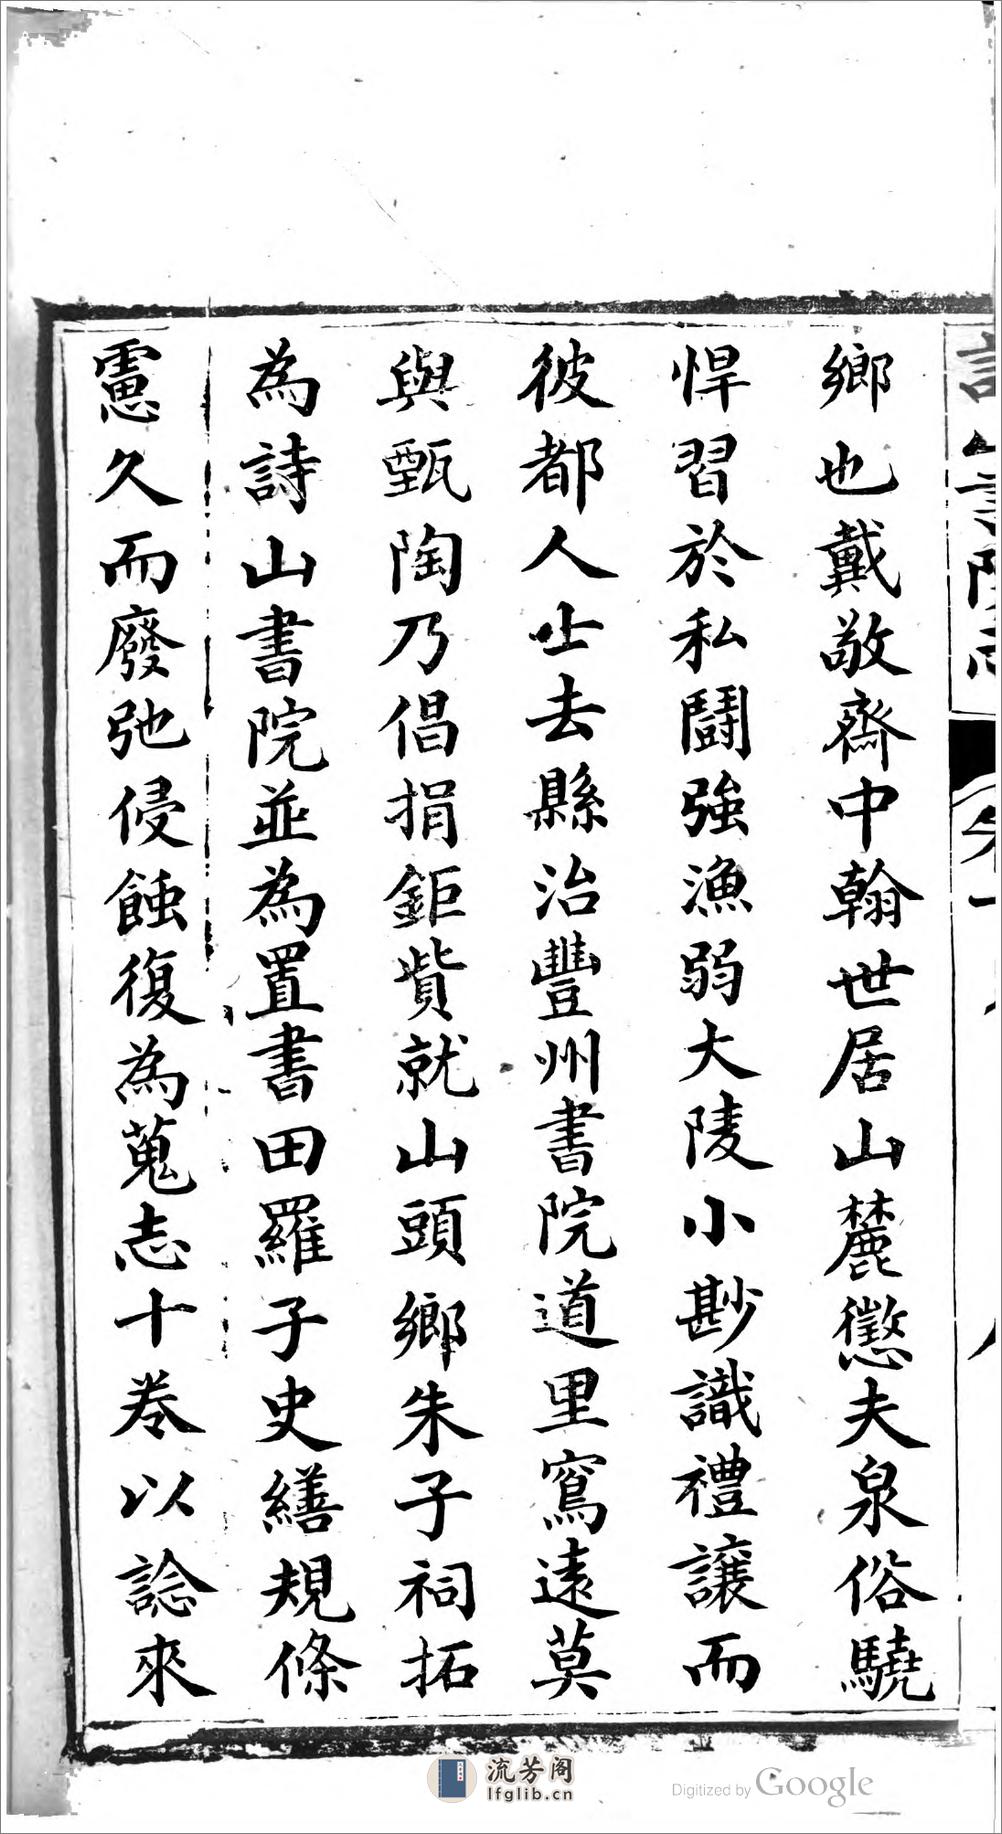 鄉也戴敬齋中翰世居山麓懲夫泉俗驍
悍習於私鬪強漁弱大陵小尠識禮讓而
彼都人士去縣治豐州書院道里窵遠莫
與甄陶乃倡捐鉅貲就山頭鄉朱子祠拓
為詩山書院並為置書田羅子史繕規條
慮久而廢弛侵蝕復為蒐志十卷以諗來
流芳阁
lfglib.cn
Digitized by Google